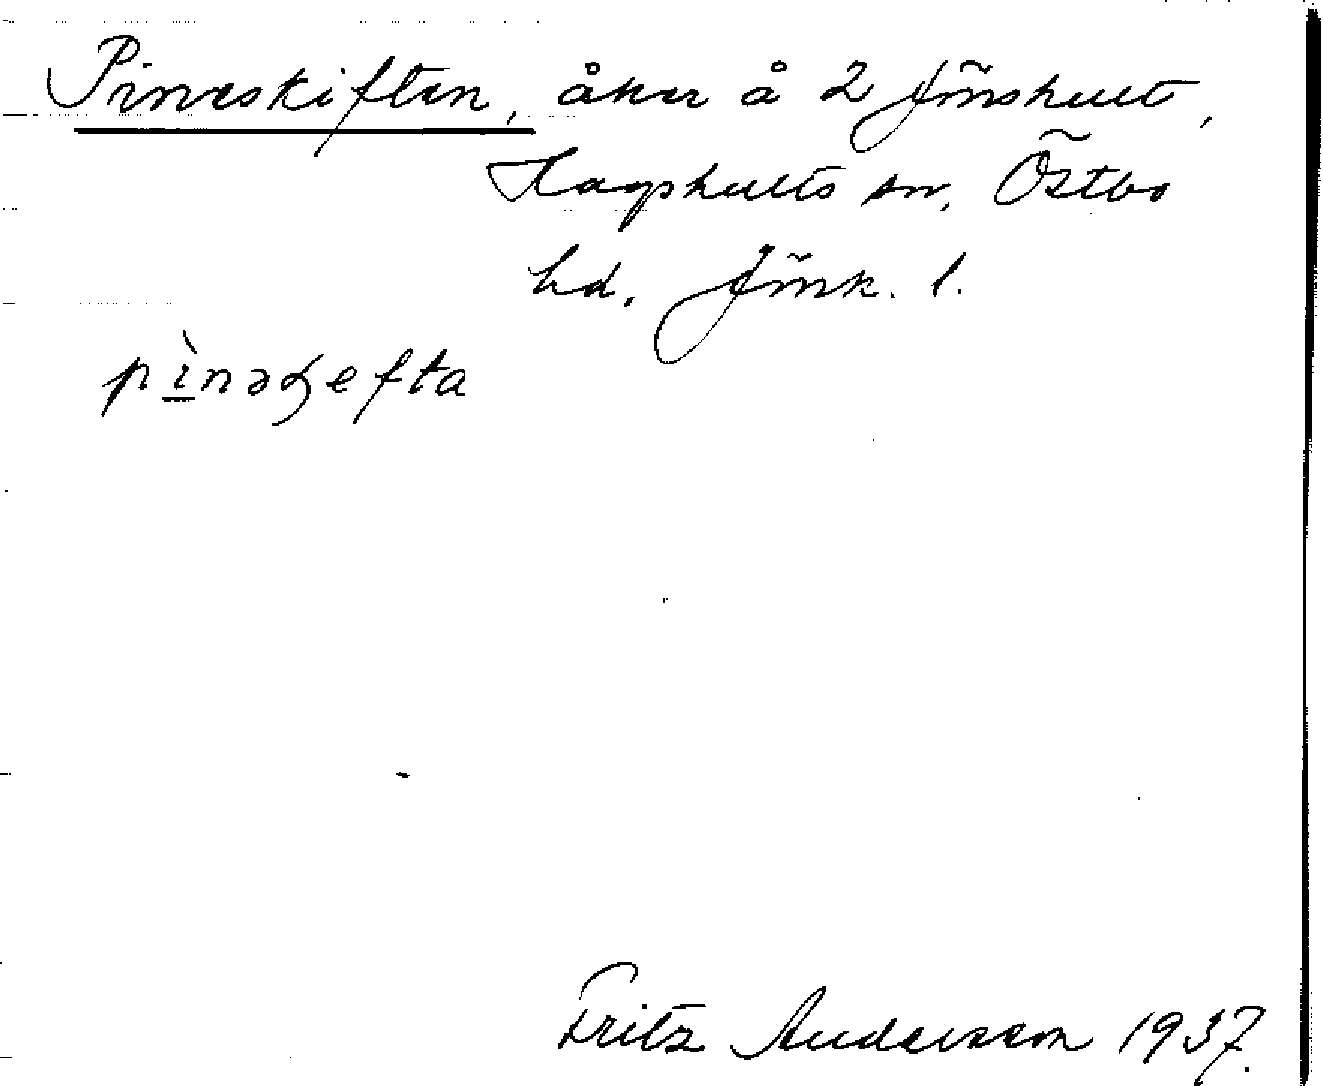 Pineskiften, åker å 2 Jönshult,
Hagshults sn, Östbo
hd. Jönk. l.
pìnəʃefta
Fritz Andersson 1937.